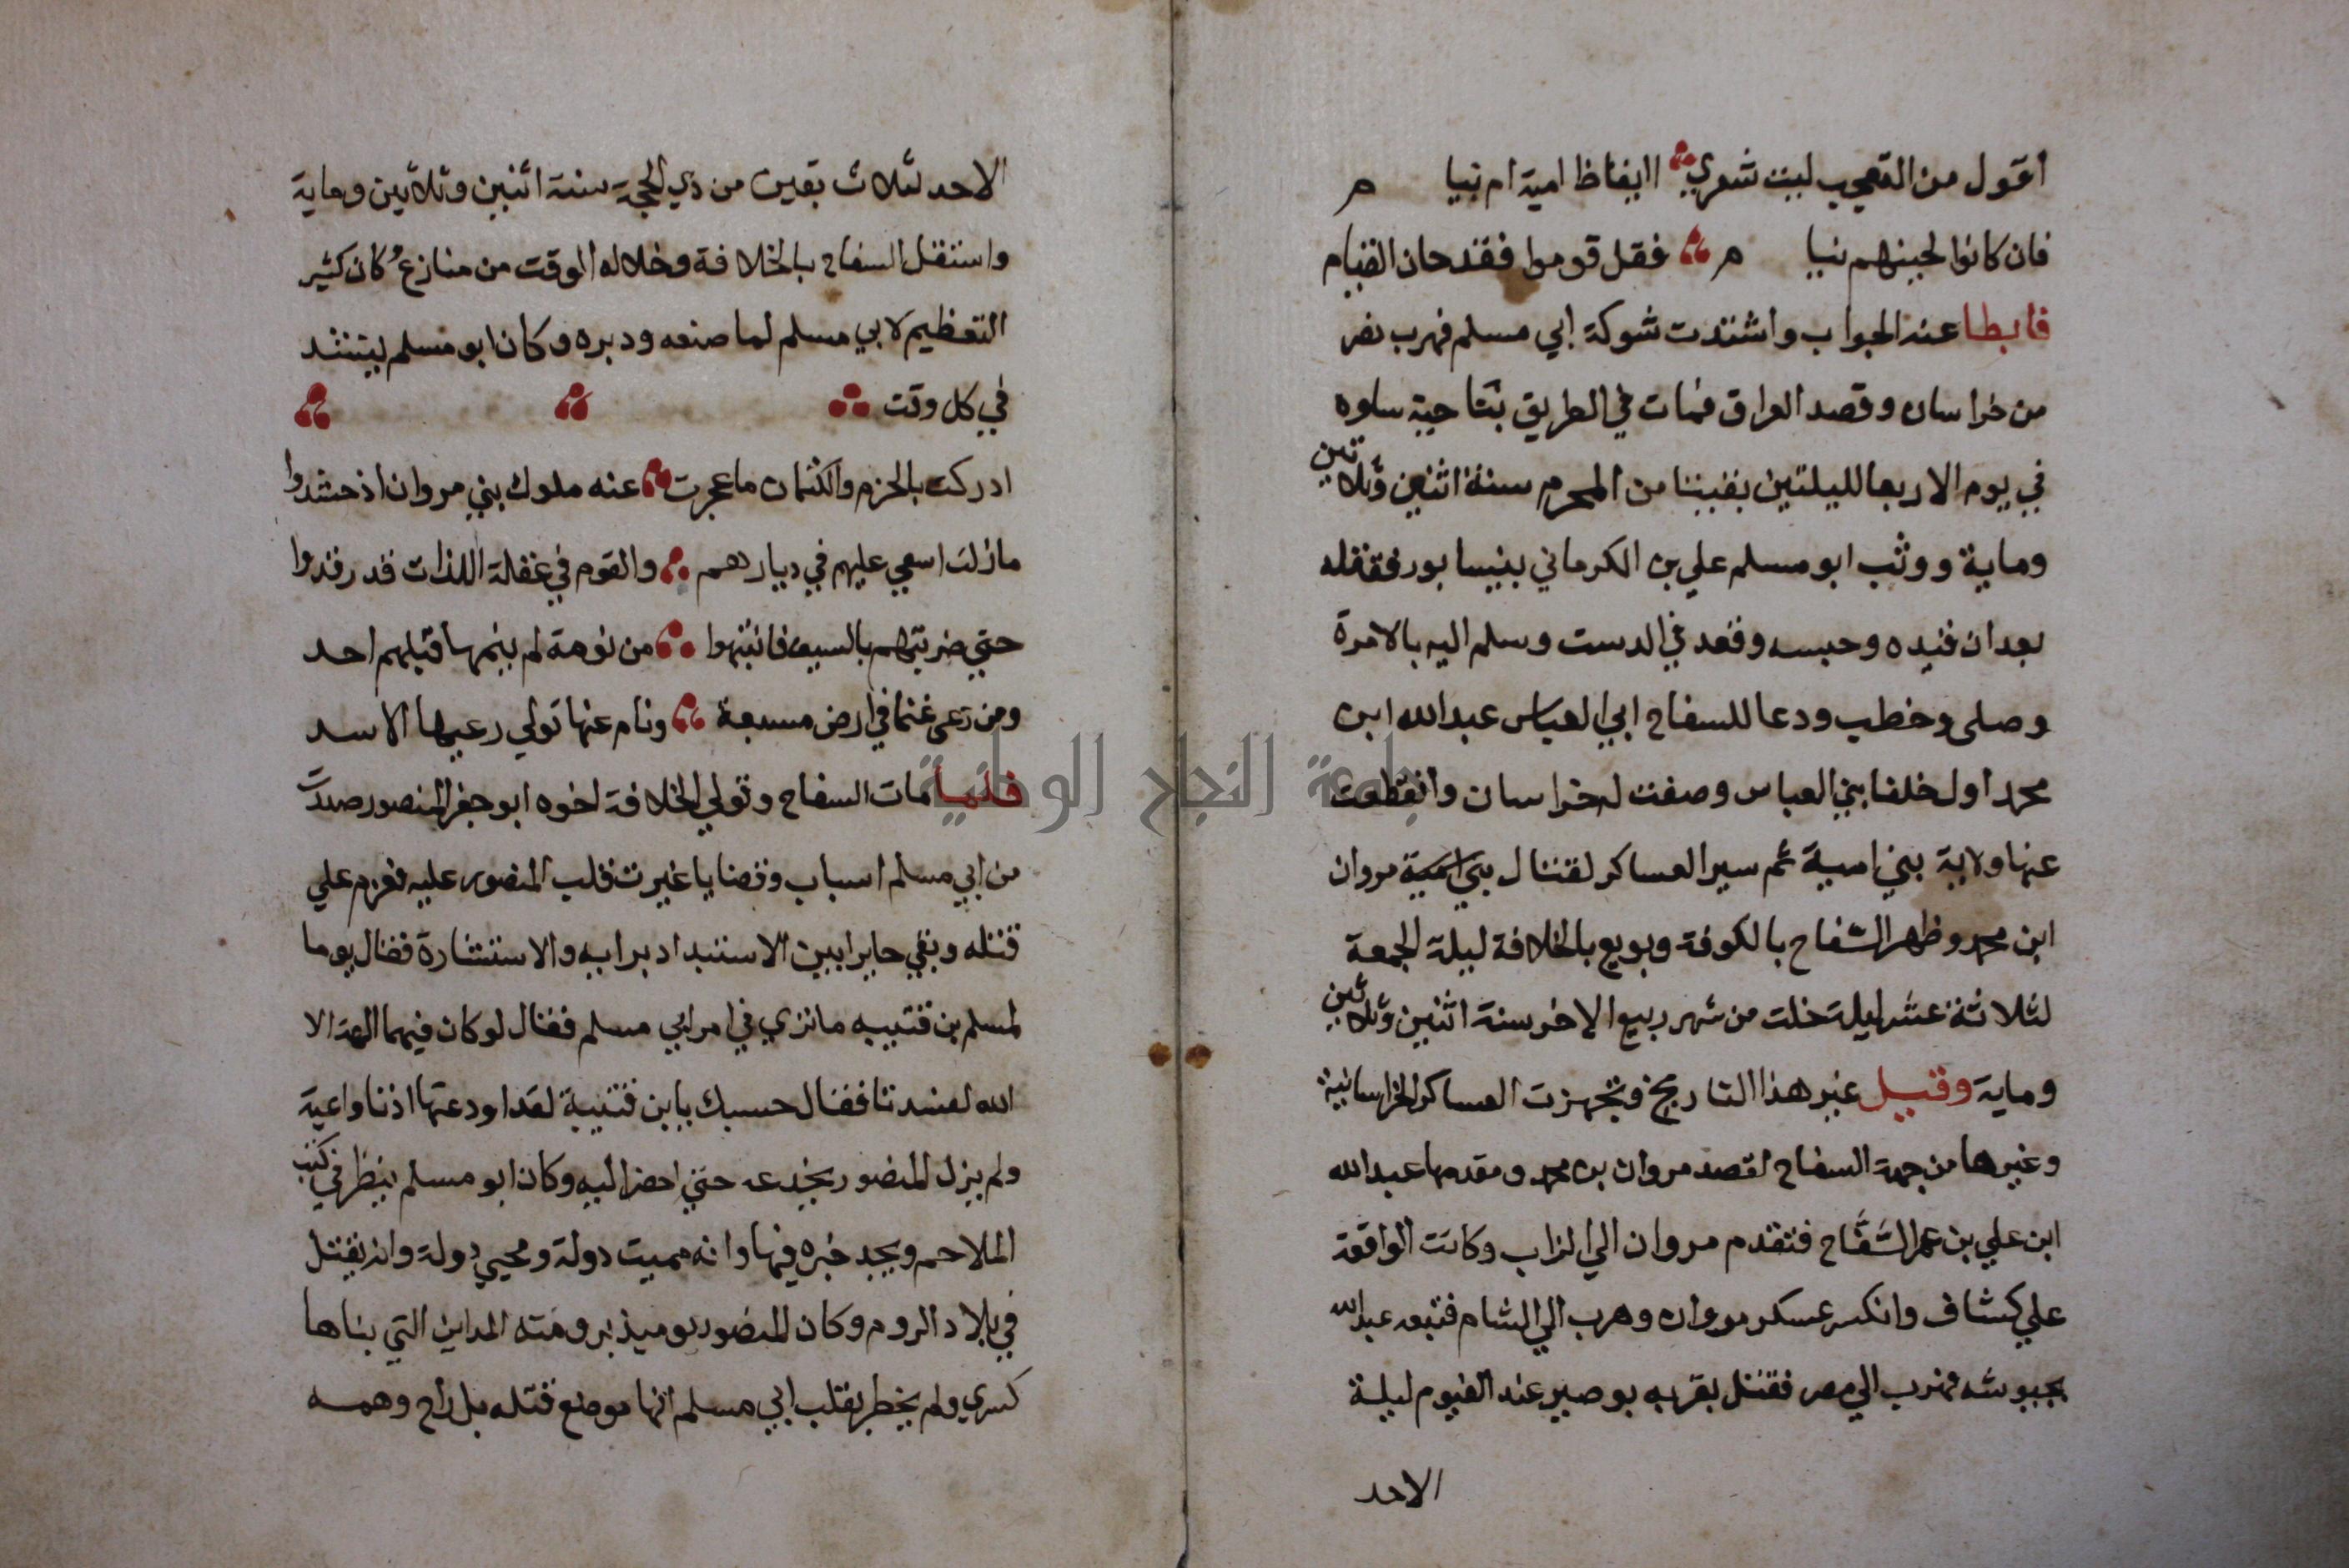 اقول من التعجب ليت شعري اايقاظ امية ام نيا م
فان كانوا لحينهم نيا م فقل قوموا فقد حان القيام
فابطا عنه الجواب واشتدت شوكة ابي مسلم فهرب نصر
من خراسان وقصد العراق فمات في الطريق بناحية ساوه
في يوم الاربعا لليلتين بقيتا من المحرم سنة اثنين وثلاثين
وماية ووثب ابو مسلم علي بن الكرماني بنيسابور فقتله
بعد ان قيده وحبسه وقعد في الدست وسلم اليه بالامرة
وصلى وخطب ودعا للسفاح ابي العباس عبد الله ابن
محمد اول خلفا بني العباس وصفت له خراسان وانقطعت
عنها ولاية بني امية ثم سير العساكر لقتال بني امية مروان
ابن محمد وظهر السفاح بالكوفة وبويع بالخلافة ليلة الجمعة
لثلاثة عشر ليلة خلت من شهر ربيع الاخر سنة اثنين وثلاثين
وماية وقيل غير هذا التاريخ وتجهزت العساكر الخراسانية
وغيرها من جهة السفاح لقصد مروان بن محمد ومقدمها عبد الله
ابن علي بن عم السَّفَّاح فتقدم مروان الي الزاب وكانت الواقعة
علي كشاف وانكسر عسكر مروان وهرب الي الشام فتبعه عبد الله
بجيوشه فهرب الي مصر فقتل بقريه بوصير عند الفيوم ليلة
الاحد
الاحد لثلاث بقين من ذي الحجة سنة اثنين وثلاثين وماية
واستقل السفاح بالخلافة وخلا له الوقت من منازع وكان كثير
التعظيم لابي مسلم لما صنعه ودبره وكان ابو مسلم ينشد
في كل وقت
ادركت بالحزم والكتمان ما عجزت عنه ملوك بني مروان اذ حشدوا
ما زلت اسعي عليهم في ديارهم والقوم في غفلة اللذات قد رقدوا
حتي ضربتهم بالسيف فانتبهوا من نومة لم ينمها قبلهم احد
ومن رعى غنما في ارض مسبعة ونام عنها تولي رعيها الاسد
فلما مات السفاح وتولي الخلافة اخوه ابو جعفر المنصور صدرت
من ابي مسلم اسباب وقضايا غيرت قلب المنصور عليه فعزم علي
قتله وبقي حايرا بين الاستبداد برايه والاستشارة فقال يوما
لمسلم بن قتيبه ما تري في امر ابي مسلم فقال لو كان فيهما الهة الا
الله لفسدتا فقال حسبك يا بن قتيبة لقد اودعتها اذنا واعية
ولم يزل المنصور يخدعه حتي احضر اليه وكان ابو مسلم ينظر في كتب
الملاحم ويجد خبره فيها وانه مميت دولة ومحيي دولة وانه يقتل
في بلاد الروم وكان المنصور يوميذ برومته المداين التي بناها
كسري ولم يخطر بقلب ابي مسلم انها موضع قتله بل راح وهمه
جامعة النجاح الوطنية